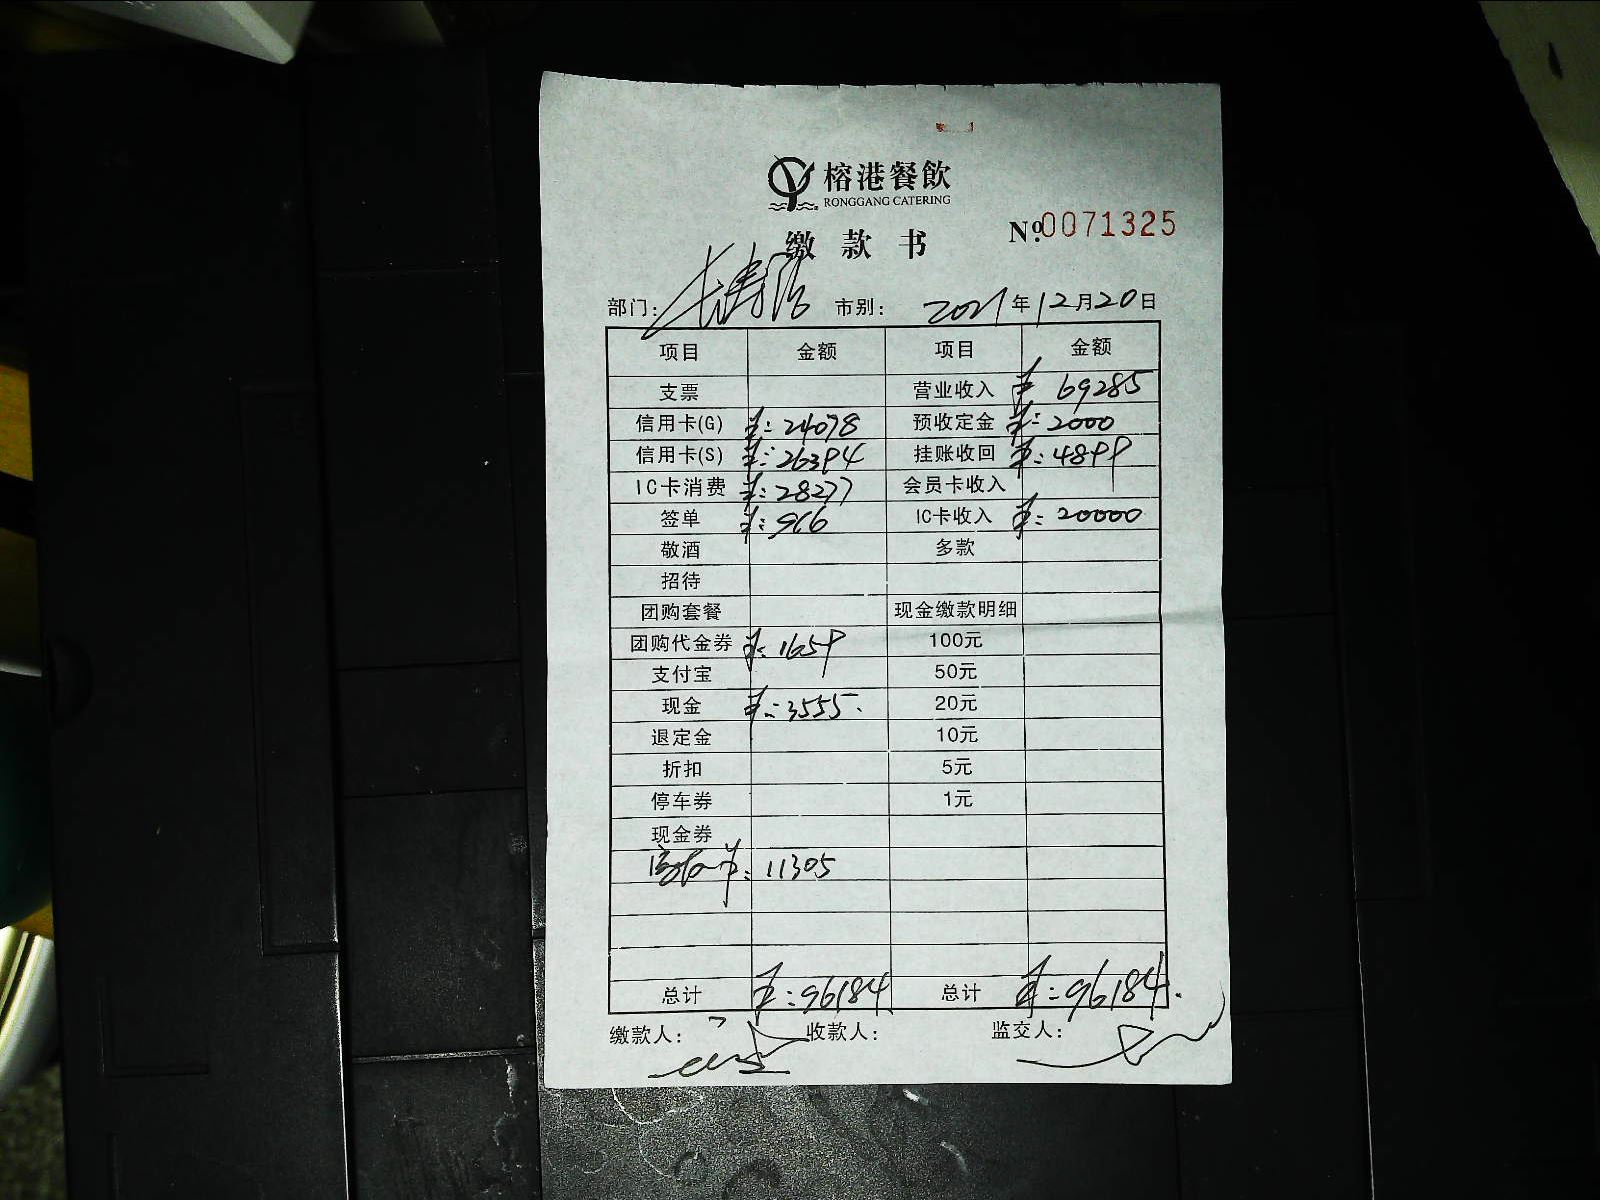 榕港餐飲
RONGGANG CATERING
缴款书
№0071325
部门: 市别: 2021年12月20日
项目 金额 项目 金额
支票 营业收入 ¥ 69285
信用卡(G) ¥: 24078 预收定金 ¥: 2000
信用卡(S) ¥: 26394 挂账收回 ¥: 4899
IC卡消费 ¥: 28277 会员卡收入
签单 ¥: 916 IC卡收入 ¥: 20000
敬酒 多款
招待
团购套餐 现金缴款明细
团购代金券 ¥: 1659 100元
支付宝 50元
现金 ¥: 3555. 20元
退定金 10元
折扣 5元
停车券 1元
现金券
: 11305
总计 ¥: 96184 总计 ¥: 96184.
缴款人: 收款人: 监交人: